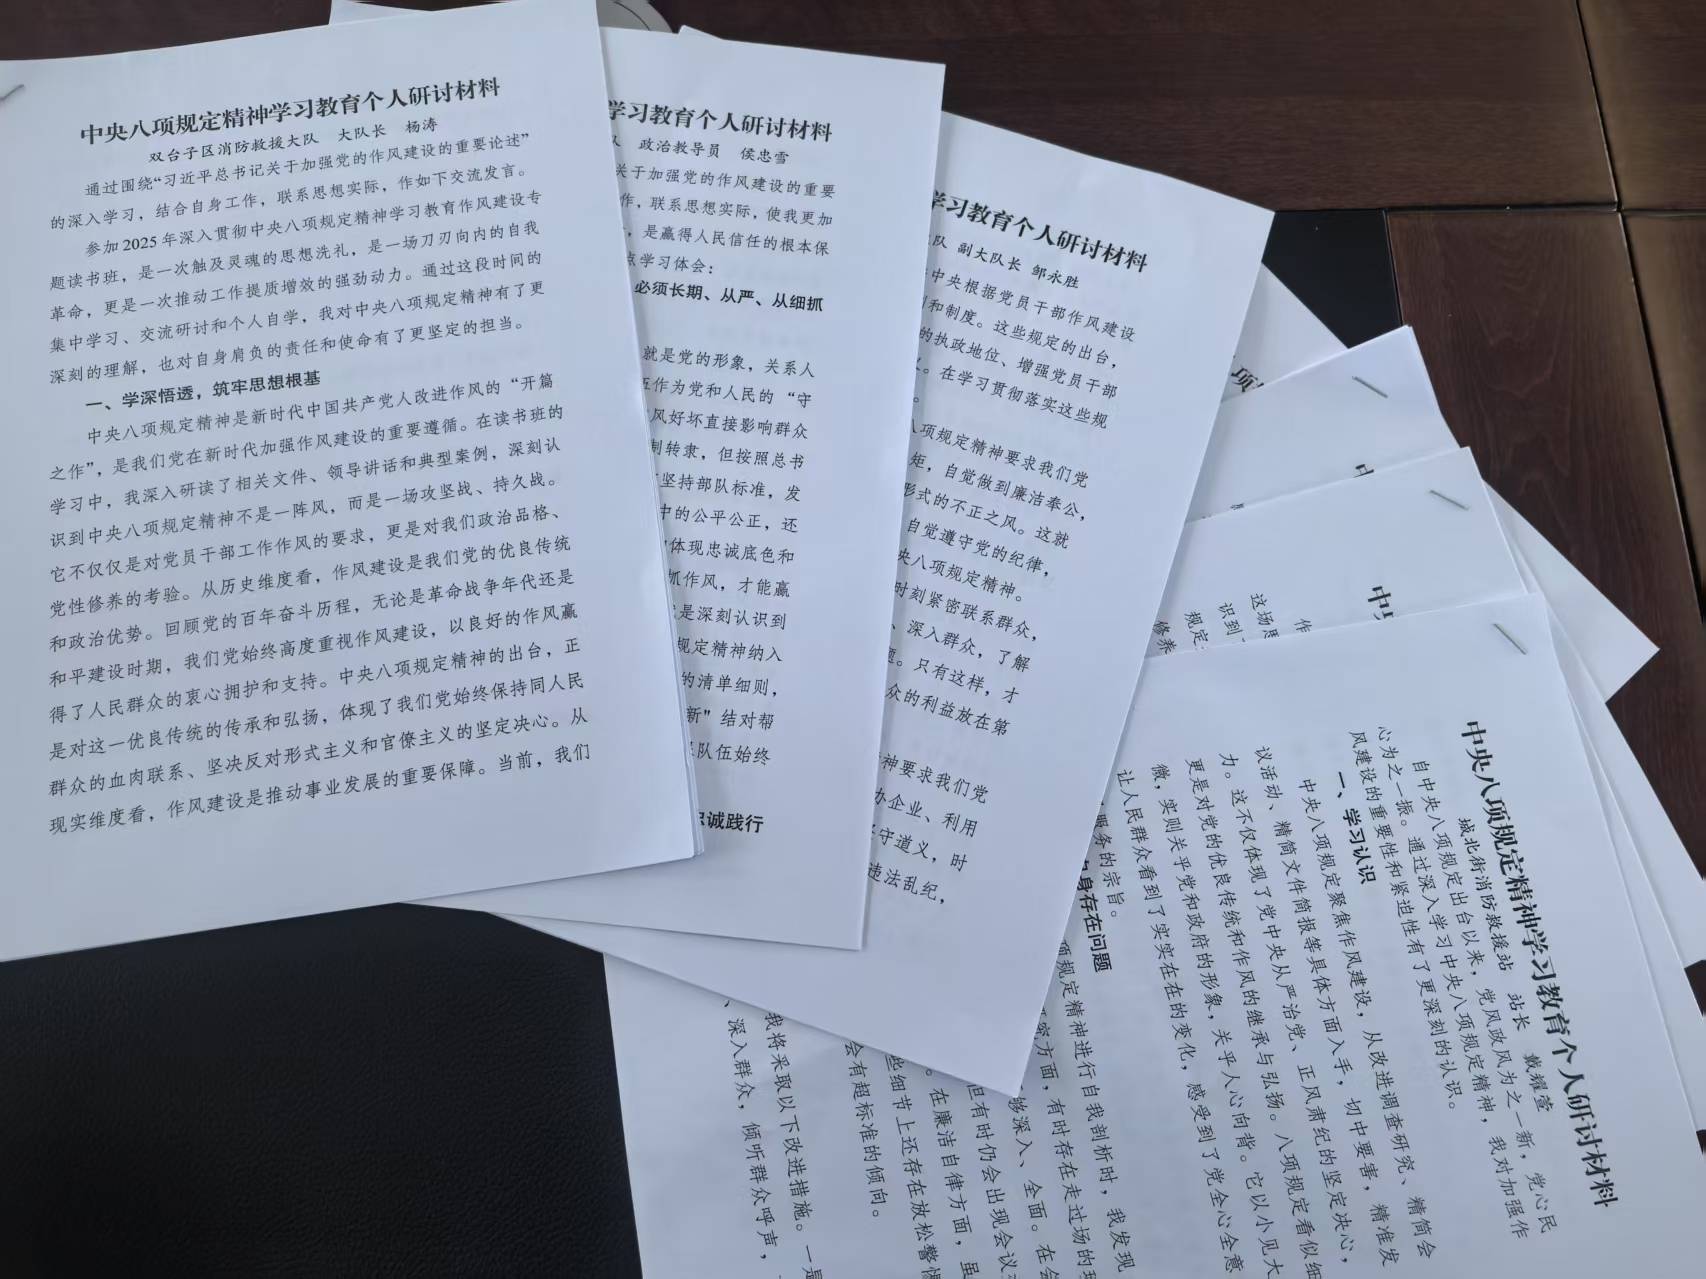 中央八项规定精神学习教育个人研讨材料
双台子区消防救援大队 大队长 杨涛
通过围绕“习近平总书记关于加强党的作风建设的重要论述”
的深入学习，结合自身工作，联系思想实际，作如下交流发言。
参加2025年深入贯彻中央八项规定精神学习教育作风建设专
题读书班，是一次触及灵魂的思想洗礼，是一场刀刃向内的自我
革命，更是一次推动工作提质增效的强劲动力。通过这段时间的
集中学习、交流研讨和个人自学，我对中央八项规定精神有了更
深刻的理解，也对自身肩负的责任和使命有了更坚定的担当。
一、学深悟透，筑牢思想根基
中央八项规定精神是新时代中国共产党人改进作风的“开篇
之作”，是我们党在新时代加强作风建设的重要遵循。在读书班的
学习中，我深入研读了相关文件、领导讲话和典型案例，深刻认
识到中央八项规定精神不是一阵风，而是一场攻坚战、持久战。
它不仅仅是对党员干部工作作风的要求，更是对我们政治品格、
党性修养的考验。从历史维度看，作风建设是我们党的优良传统
和政治优势。回顾党的百年奋斗历程，无论是革命战争年代还是
和平建设时期，我们党始终高度重视作风建设，以良好的作风赢
得了人民群众的衷心拥护和支持。中央八项规定精神的出台，正
是对这一优良传统的传承和弘扬，体现了我们党始终保持同人民
群众的血肉联系、坚决反对形式主义和官僚主义的坚定决心。从
现实维度看，作风建设是推动事业发展的重要保障。当前，我们
学习教育个人研讨材料
队 政治教导员 侯忠雪
关于加强党的作风建设的重要
作，联系思想实际，使我更加
，是赢得人民信任的根本保
点学习体会：
必须长期、从严、从细抓
就是党的形象，关系人
伍作为党和人民的“守
风好坏直接影响群众
制转隶，但按照总书
坚持部队标准，发
中的公平公正，还
体现忠诚底色和
抓作风，才能赢
是深刻认识到
规定精神纳入
的清单细则，
新”结对帮
队伍始终
忠诚践行
学习教育个人研讨材料
队 副大队长 邹永胜
中央根据党员干部作风建设
和制度。这些规定的出台，
的执政地位、增强党员干部
。在学习贯彻落实这些规
。
八项规定精神要求我们党
矩，自觉做到廉洁奉公，
形式的不正之风。这就
自觉遵守党的纪律，
央八项规定精神。
时刻紧密联系群众，
、深入群众，了解
题。只有这样，才
众的利益放在第
神要求我们党
办企业、利用
守道义，时
违法乱纪，
项
中
中央
这场
识到
规定
修养
中央八项规定精神学习教育个人研讨材料
城北街消防救援站 站长 戴耀萱
自中央八项规定出台以来，党风政风为之一新，党心民
心为之一振。通过深入学习中央八项规定精神，我对加强作
风建设的重要性和紧迫性有了更深刻的认识。
一、学习认识
中央八项规定聚焦作风建设，从改进调查研究、精简会
议活动、精简文件简报等具体方面入手，切中要害，精准发
力。这不仅体现了党中央从严治党、正风肃纪的坚定决心，
更是对党的优良传统和作风的继承与弘扬。八项规定看似细
微，实则关乎党和政府的形象，关乎人心向背。它以小见大
让人民群众看到了实实在在的变化，感受到了党全心全意
服务的宗旨。
自身存在问题
项规定精神进行自我剖析时，我发现
究方面，有时存在走过场的现
够深入、全面。在会
但有时仍会出现会议
。在廉洁自律方面，虽
些细节上还存在放松警惕
会有超标准的倾向。
我将采取以下改进措施。一是
、深入群众，倾听群众呼声，